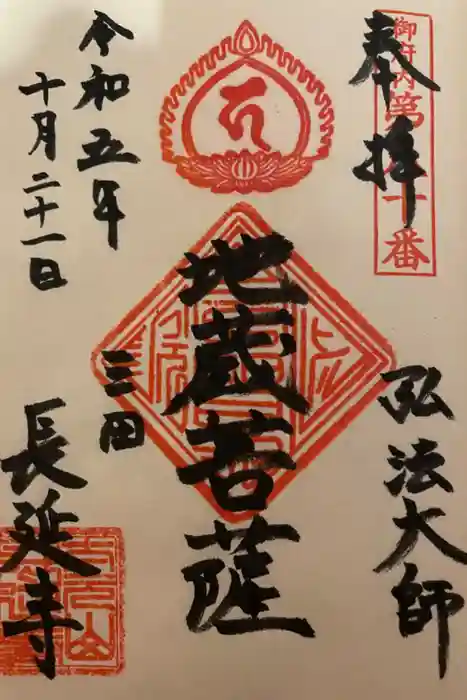 奉拝
御府内第
十番
弘法大師
地蔵菩薩
令和五年
十月二十一日
三田
長延寺